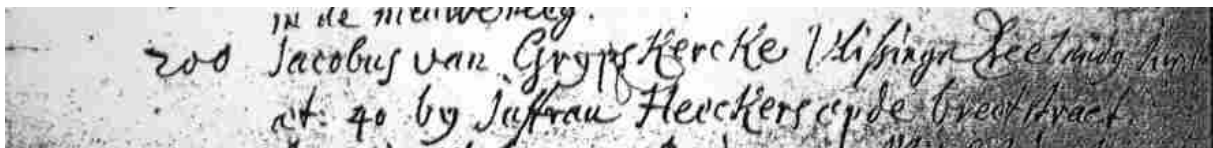 in de nieuwesteeg.
200 Jacobus van Grypskercke Vlissinga Zeelandg
at. 40 by Juffrau Heeckers op de breetstraet.